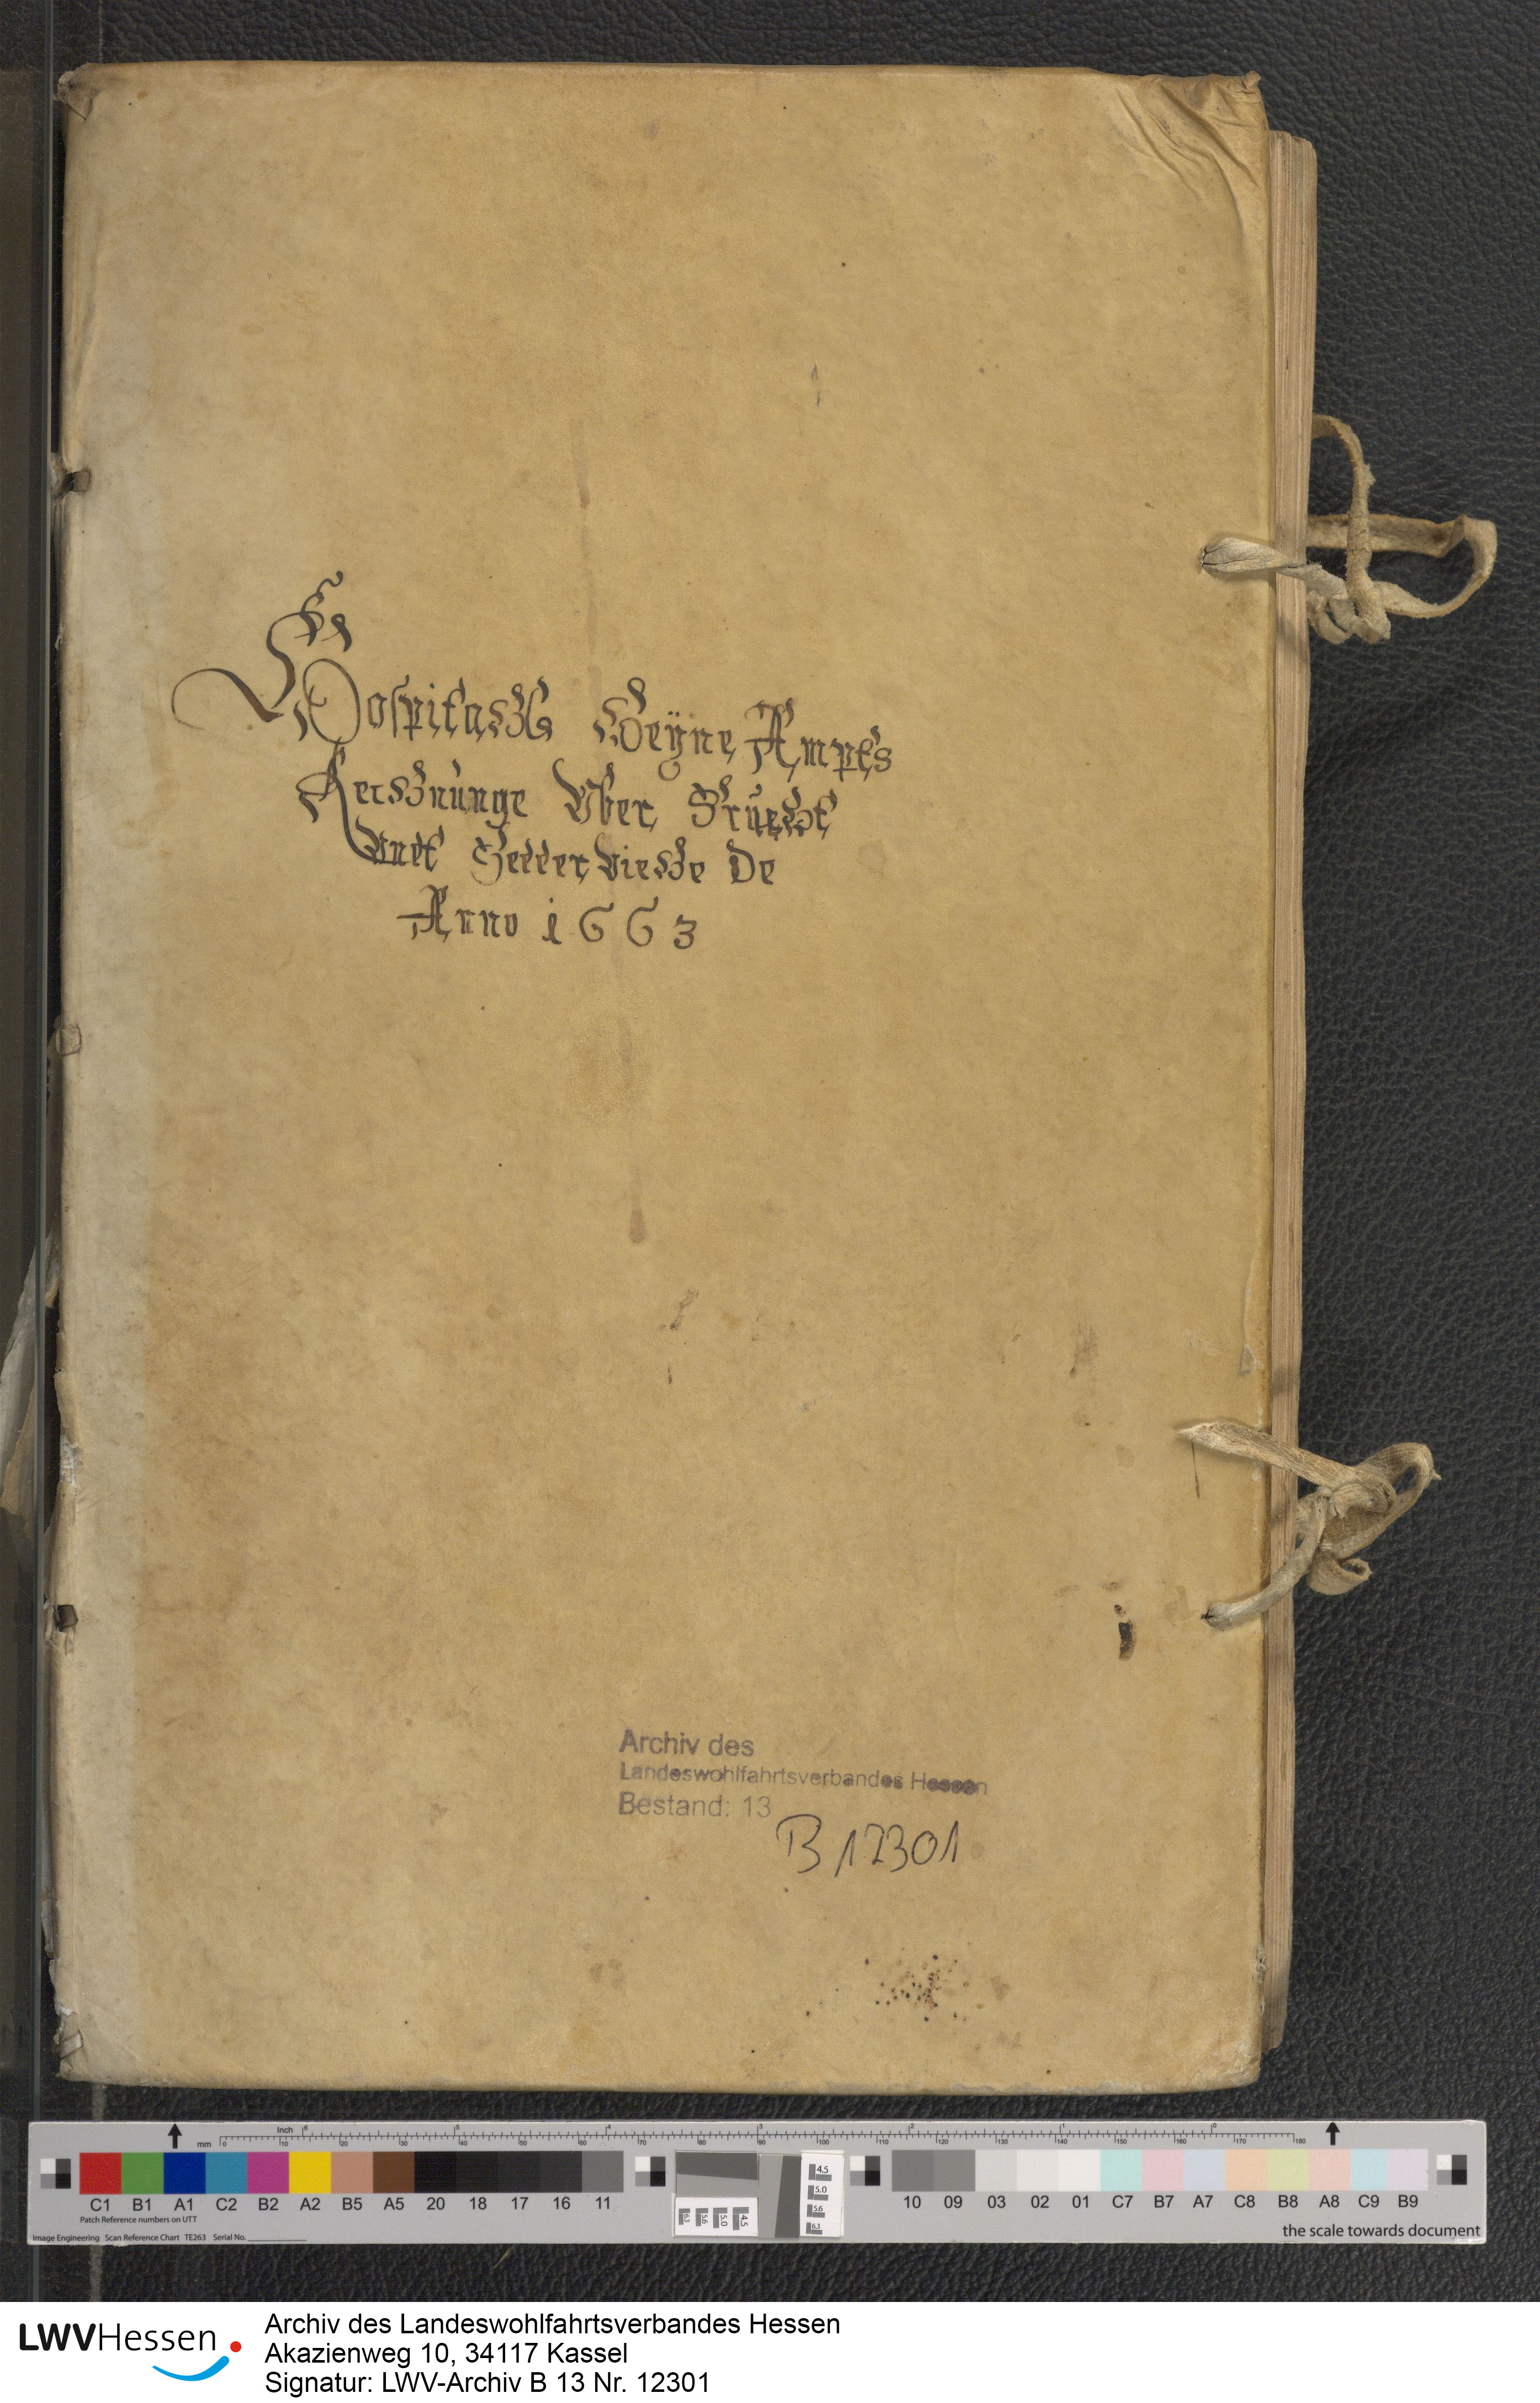 Hospitaß Heÿne Ampts
Rechnunge Vber Frucht
Vndt Feder Viehe De
Anno 1663
Archiv des
Landeswohlfahrtsverbandes Hessen
Bestand: 13
B 12301
Inch
mm
C1 B1 A1 C2 B2 A2 B5 A5 20 18 17 16 11 10 09 03 02 01 C7 B7 A7 C8 B8 A8 C9 B9
Patch Reference numbers on UTT
Image Engineering Scan Reference Chart TE263 Serial No.
the scale towards document
LWVHessen
Archiv des Landeswohlfahrtsverbandes Hessen
Akazienweg 10, 34117 Kassel
Signatur: LWV-Archiv B 13 Nr. 12301